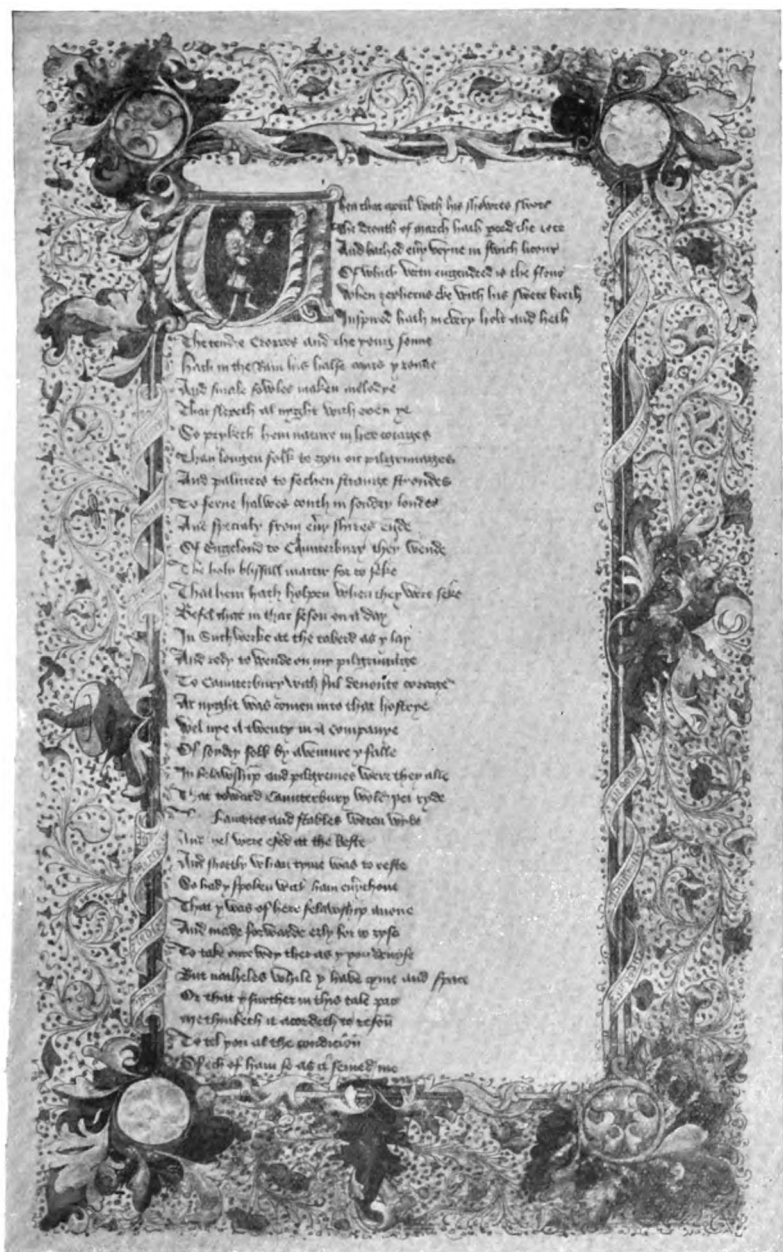 When that april with his shoures swote
The drouth of march hath perd the rote
And bathed euy veyne in swich licour
Of which vertu engendred is the flour
When zepherus eke with his swete breth
Inspired hath in every holt and heth
The tendre Croppes and the yong sonne
Hath in the Ram his halfe cours y ronne
And smale fowles maken melodye
That slepeth al nyght with open ye
So pryketh hem nature in her corages
Than longen folk to gon on pilgrimages
And palmers to sechen straunge strondes
To ferne halwes couth in sondry londes
And specialy from euy shires ende
Of Engelond to Caunterbury they wende
The holy blissfull martir for to seke
That hem hath holpen when they were seke
Befel that in that seson on a day
In Suthwerke at the taberd as y lay
And redy to wende on my pilgrimage
To Caunterbury with ful deuoute corage
At nyght was comen into that hostrye
Wel nye a twenty in a companye
Of sondry folk by aventure y falle
In felawship and pilgremes were they alle
That toward Caunterbury wole ryde
Chaumbres and stables weren wyde
And wel were esed at the beste
And shortly whan tyme was to reste
So had y spoken with ham euychone
That y was of here felawship anone
And made forwarde erly for to ryse
To take oure wey ther as y you deuyse
But natheles while y have tyme and space
Or that y further in this tale pace
me thinketh it acordeth to reson
To tel you al the condicion
Of ech of ham so as it semed me